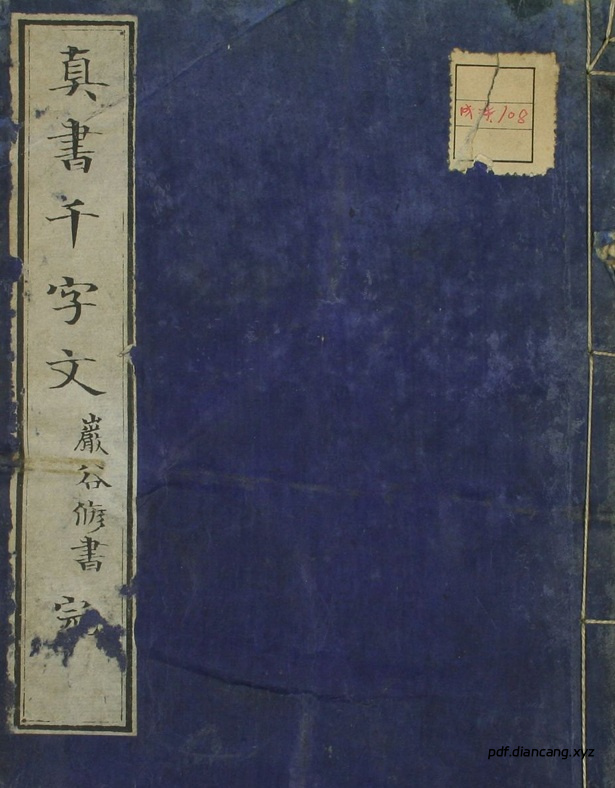 真書千字文
巖谷修書
完
108
pdf.diancang.xyz